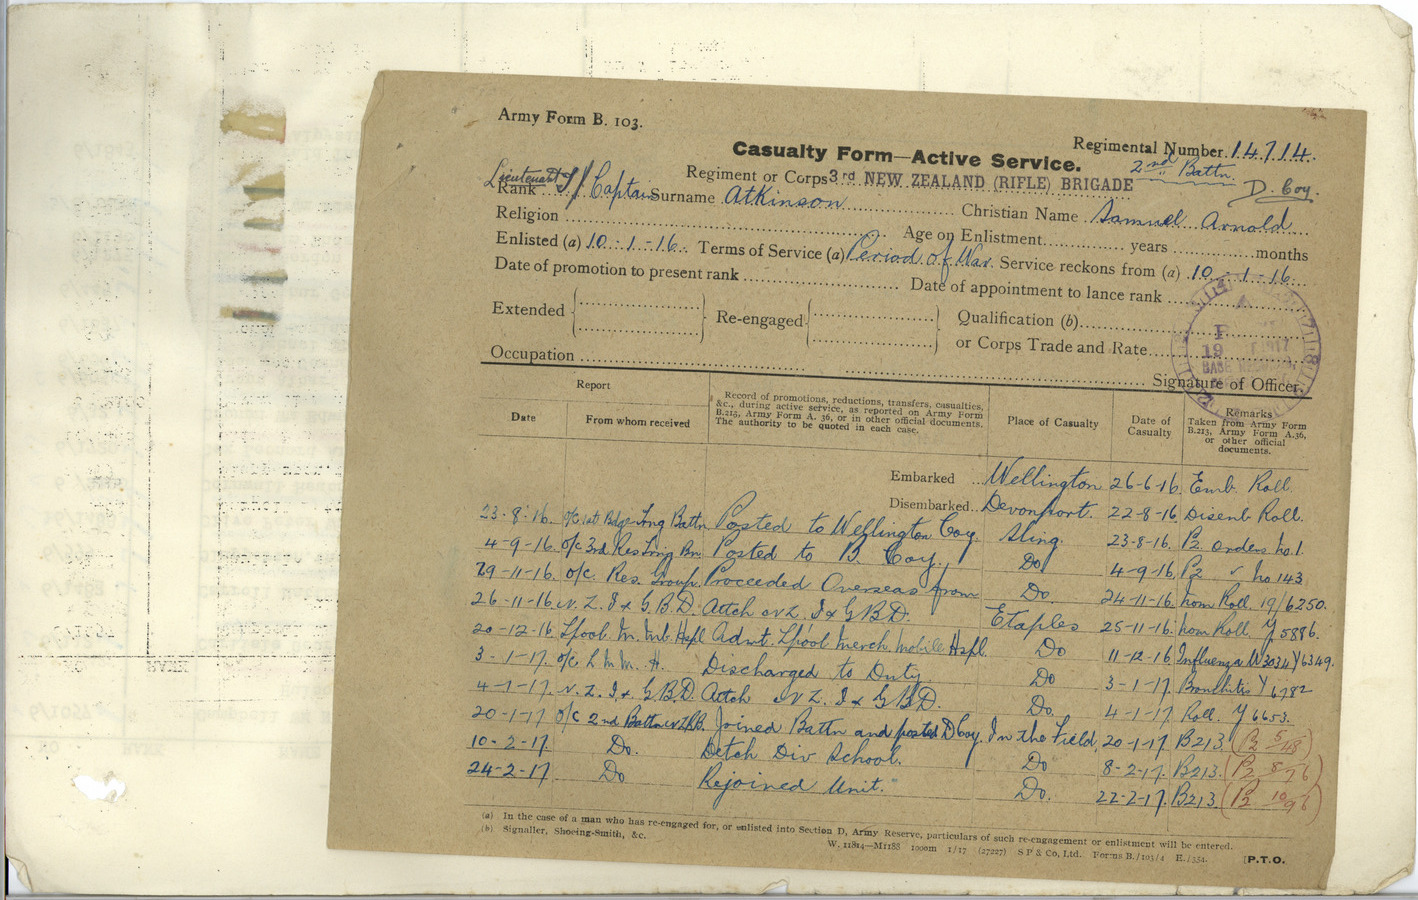 Army Form B. 103.
Casualty Form—Active Service.
Regimental Number 14714.
Regiment or Corps 3rd NEW ZEALAND (RIFLE) BRIGADE 2nd Battn.
D. Coy.
Lieutenant
Rank T/Captain Surname Atkinson Christian Name Samuel Arnold
Religion Age on Enlistment years months
Enlisted (a) 10-1-16. Terms of Service (a) Period of War. Service reckons from (a) 10-1-16.
Date of promotion to present rank Date of appointment to lance rank
Extended Re-engaged Qualification (b)
or Corps Trade and Rate
Occupation Signature of Officer.
Report
Date From whom received
Record of promotions, reductions, transfers, casualties, &c., during active service, as reported on Army Form B.213, Army Form A. 36, or in other official documents. The authority to be quoted in each case.
Place of Casualty
Date of Casualty
Remarks
Taken from Army Form B.213, Army Form A.36, or other official documents.
Embarked Wellington 26-6-16. Emb Roll.
Disembarked Devonport. 22-8-16 Disemb Roll.
23-8-16. O/C 1st Bdge Trng Battn Posted to Wellington Coy Sling. 23-8-16. P2 orders No.1.
4-9-16. O/c 3rd Res Trng Bn. Posted to B. Coy. Do 4-9-16. P2 " No 143
29-11-16. O/c. Res. Group. Proceeded Overseas from Do. 24-11-16. Nom Roll. 19/6250.
26-11-16 N.Z. I & G.B.D. Attch NZ. I & G B D. Etaples 25-11-16. Nom Roll. Y 5886.
20-12-16 Lpool. M. Mb. Hspl Admt. Lpool Merch. Mobile Hspl. Do 11-12-16 Influenza W3034 Y6349.
3-1-17. O/c L M M. H. Discharged to Duty Do 3-1-17. Bronchitis Y 6782
4-1-17. N.Z. I & G.B.D. Attch NZ. I & G B D. Do. 4-1-17. Roll. Y 6653.
20-1-17 O/C 2nd Battn NZRB. Joined Battn and posted D Coy. In the Field, 20-1-17 B213. (P2 5/48)
10-2-17. Do. Detch Div School. Do 8-2-17. B213. (P2 8/76)
24-2-17 Do Rejoined Unit. Do. 22-2-17. B213. (P2 10/96)
(a) In the case of a man who has re-engaged for, or enlisted into Section D, Army Reserve, particulars of such re-engagement or enlistment will be entered.
(b) Signaller, Shoeing-Smith, &c.
W. 11814—M1188 1000m 1/17 (27227) S P & Co, Ltd. Forms B./103/4 E./354.
[P.T.O.